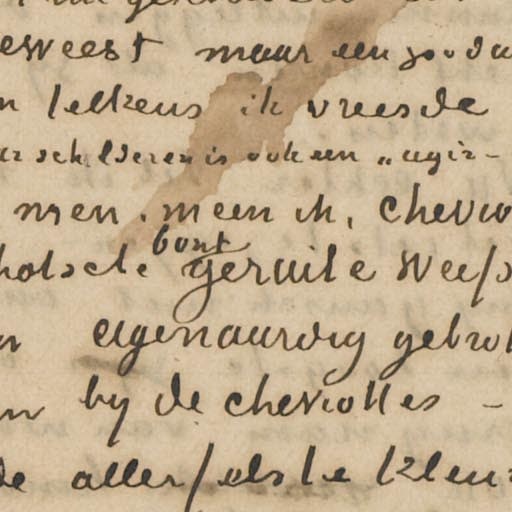 eweest maar een
telkens ik vreesde
schilderen is ook een „agir-
men. meen ik, chevio
bont
hotsche geruite weefs
eigenaardig gebro
by de cheviottes -
de allerfelste kleur